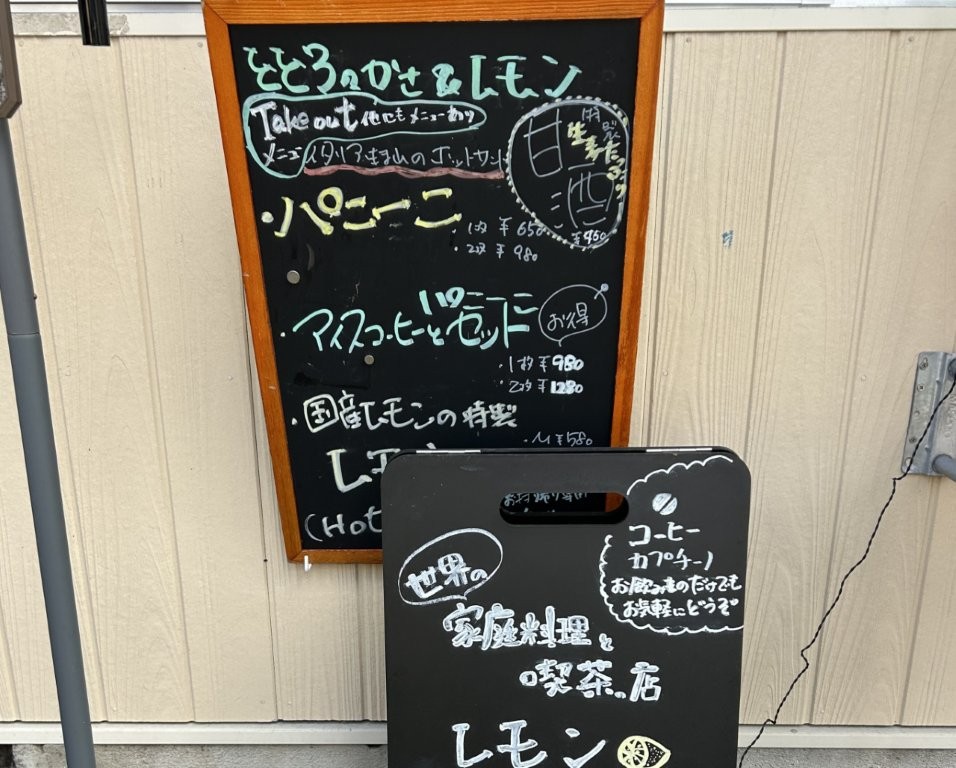 ととろのかさ&レモン
Take out 他にもメニューあり
メニュー イタリア
のホットサンド
甘酒
¥450
・パニーニ
・1枚 ¥650
・2枚 ¥980
パニーニ
・アイスコーヒーとセット
お得
・1枚 ¥980
・2枚 ¥1280
・国産レモンの特製
・M ¥580
レモ
(Hot
コーヒー
カプチーノ
お飲み物のだけでも
お気軽にどうぞ
世界の
家庭料理と
喫茶の店
レモン